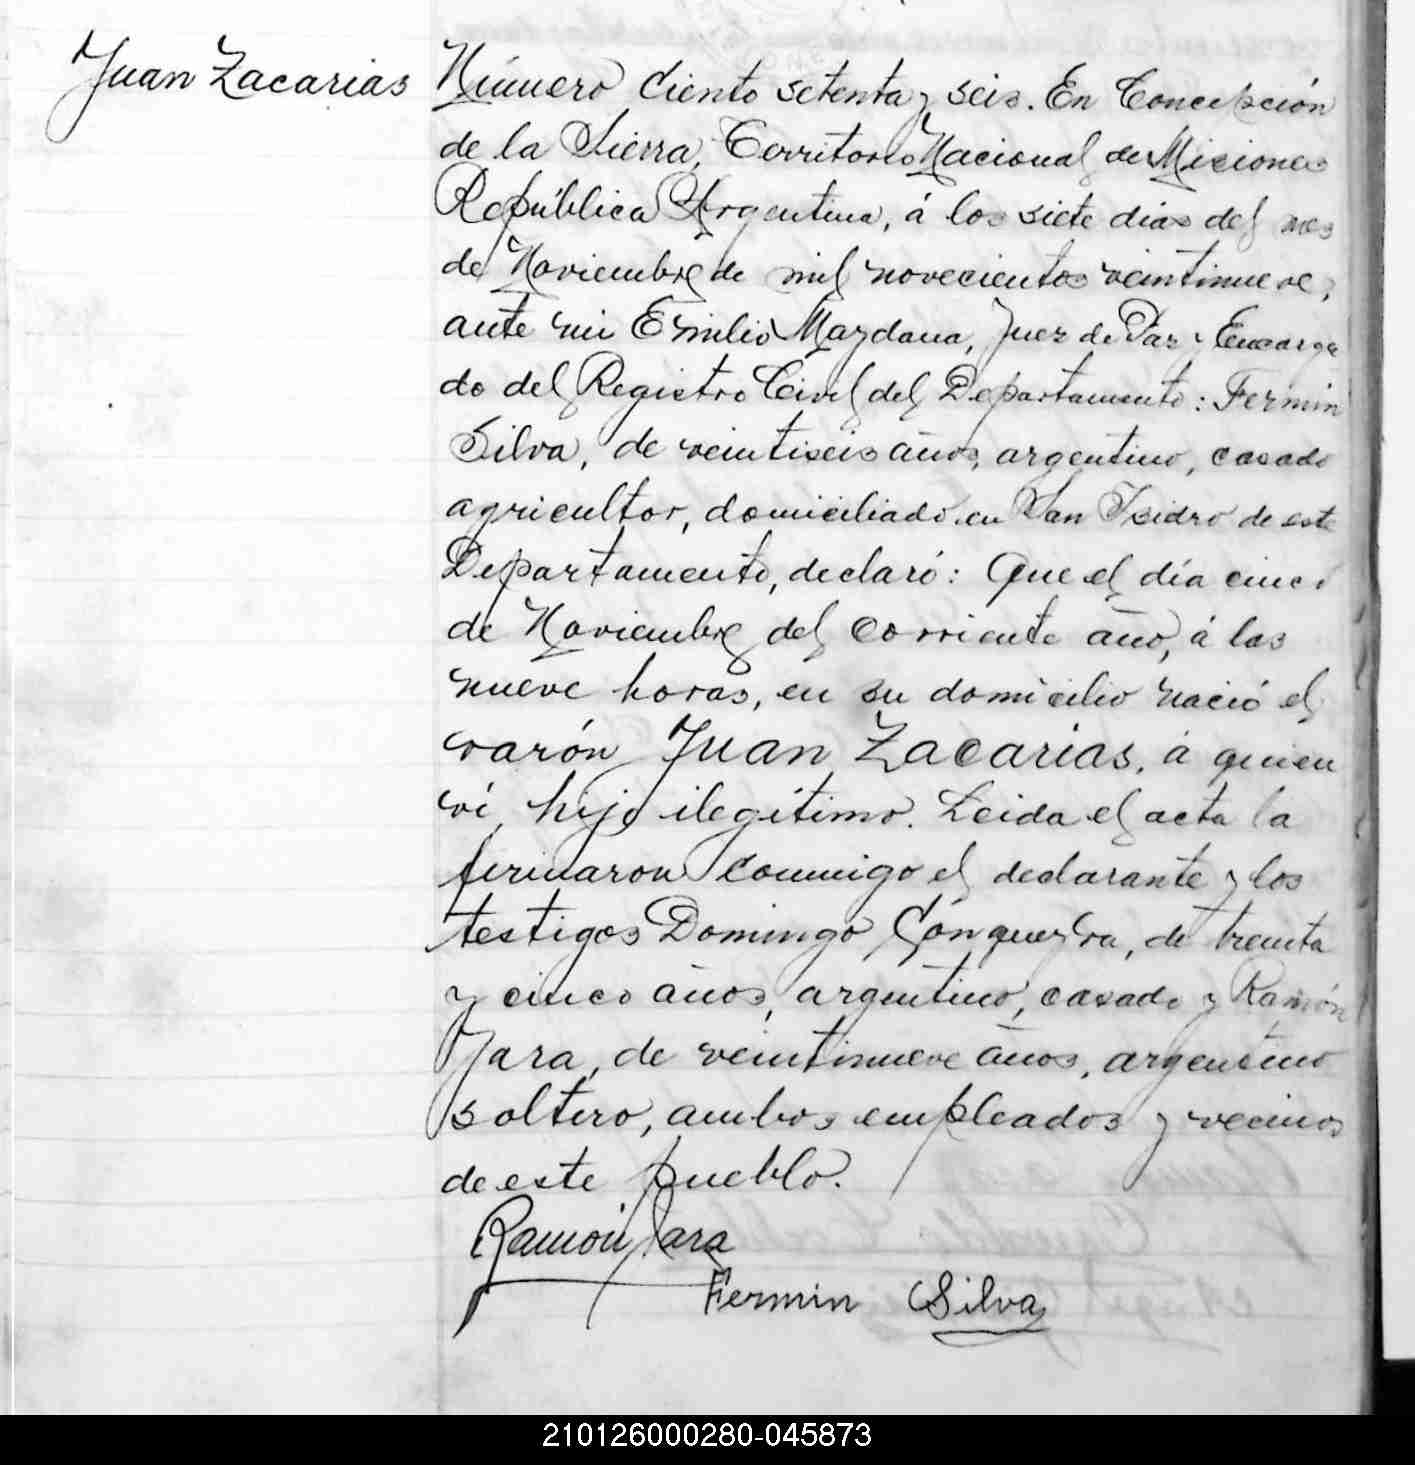 Juan Zacarias
Número Ciento setenta y seis. En Concepción
de la Sierra, Territorio Nacional de Misiones
República Argentina, á los siete dias del mes
de Noviembre de mil novecientos veintinueve,
ante mi Emilio Maydana, Juez de Paz y Encarga
do del Registro Civil del Departamento: Fermin
Silva, de veintiseis años, argentino, casado
agricultor, domiciliado en San Isidro de este
Departamento, declaró: Que el día cinco
de Noviembre del corriente año, á las
nueve horas, en su domicilio nació el
varón Juan Zacarias, á quien
ví, hijo ilegítimo. Leida el acta la
firmaron conmigo el declarante y los
testigos Domingo de treinta
y cinco años, argentino, casado y Ramón
Jara, de veintinueve años, argentino
soltero, ambos empleados y vecinos
de este pueblo.
Ramón Jara
Fermin Silva
210126000280-045873